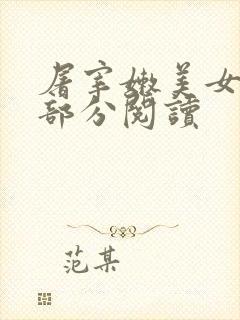 屠宰嫩美女
部分閱讀
范某